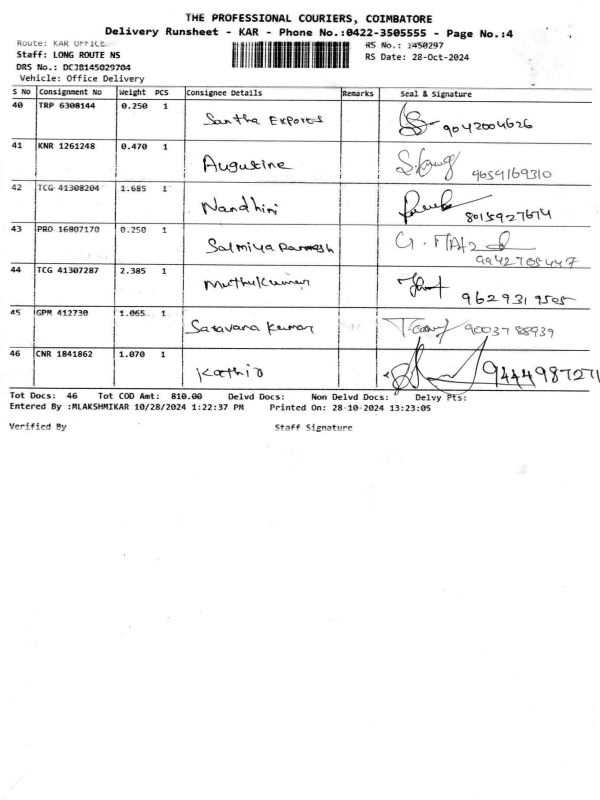 THE PROFESSIONAL COURIERS, COIMBATORE
Delivery Runsheet - KAR - Phone No.:0422-3505555 - Page No.:4
Route: KAR OFFICE
RS No.: 1450297
Staff: LONG ROUTE NS
RS Date: 28-Oct-2024
DRS No.: DC3B145029704
Vehicle: Office Delivery
S No Consignment No Weight PCS Consignee Details Remarks Seal & Signature
40 TRP 6308144 0.250 1
Santha Exports 9042004626
41 KNR 1261248 0.470 1
Augustine 9659169310
42 TCG 41308204 1.685 1
Nandhini 8015927674
43 PRO 16807170 0.250 1
Salmiya
44 TCG 41307287 2.385 1
Muthukumar 962931
45 GPM 412730 1.065 1
Saravana Kumar 9003788939
46 CNR 1841862 1.070 1
9444987271
Tot Docs: 46 Tot COD Amt: 810.00 Delvd Docs: Non Delvd Docs: Delvy Pts:
Entered By :MLAKSHMIKAR 10/28/2024 1:22:37 PM Printed On: 28-10-2024 13:23:05
Verified By Staff Signature